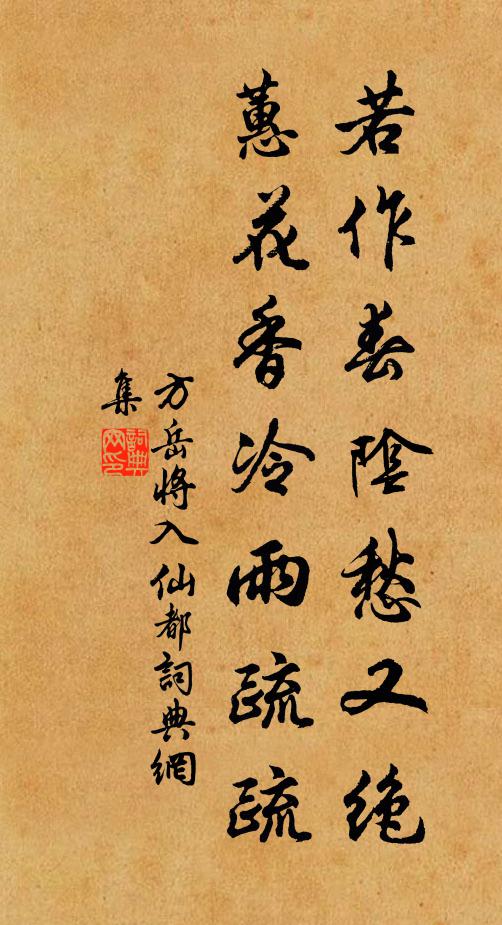 若作春陰愁又絶
蕙花香冷雨疏疏
方岳將入仙都詞典網
集
詞典
网印